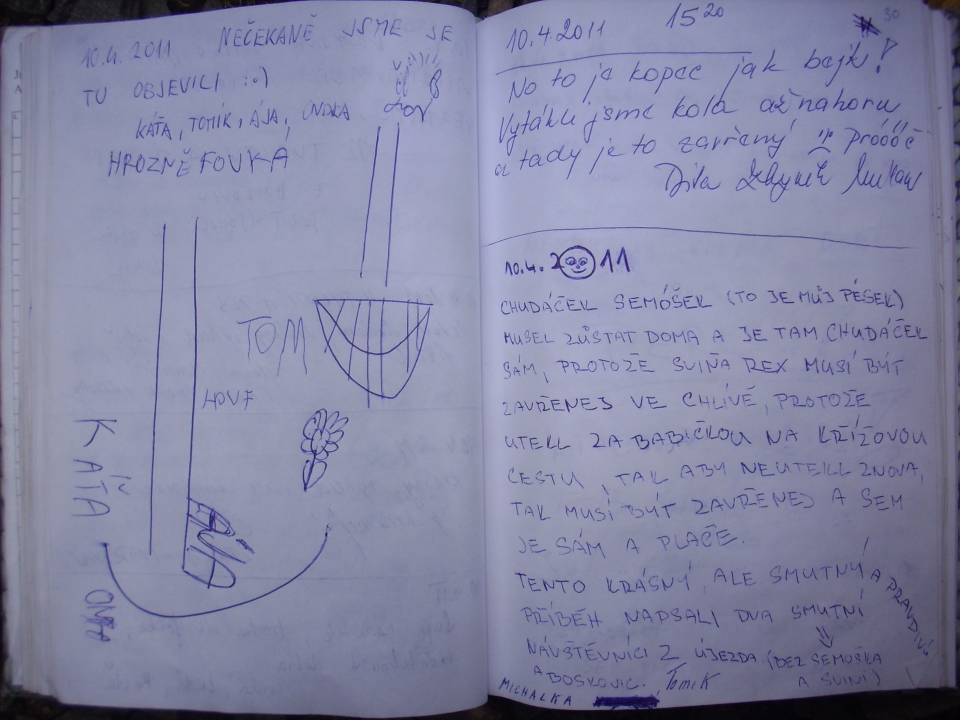 10.4. 2011 NEČEKANĚ JSME JE
TU OBJEVILI :o)
KÁŤA, TOMÍK, ÁJA, ONDRA
HROZNĚ FOUKÁ
TOM
KÁŤA
ÁJA
10.4.2011 15 20
30
No to je kopec jak bejk!
Vytáhli jsme kola až nahoru
a tady je to zavřený próóóč
Zbyněk
10.4. 2011
CHUDÁČEK SEMÓŠEK (TO JE MŮJ PÉSEK)
MUSEL ZŮSTAT DOMA A JE TAM CHUDÁČEK
SÁM, PROTOŽE SVIŇA REX MUSÍ BÝT
ZAVŘENEJ VE CHLÍVĚ, PROTOŽE
UTEKL ZA BABIČKOU NA KŘÍŽOVOU
CESTU, TAK ABY NEUTEKL ZNOVA,
TAK MUSÍ BÝT ZAVŘENEJ A SEM
JE SÁM A PLAČE.
TENTO KRÁSNÝ, ALE SMUTNÝ A PRAVDIVÝ
PŘÍBĚH NAPSALI DVA SMUTNÍ
NÁVŠTĚVNÍCI Z ÚJEZDA (BEZ SEMOŠKA
A BOSKOVIC. A SVINÍ)
MICHALKA Tomík